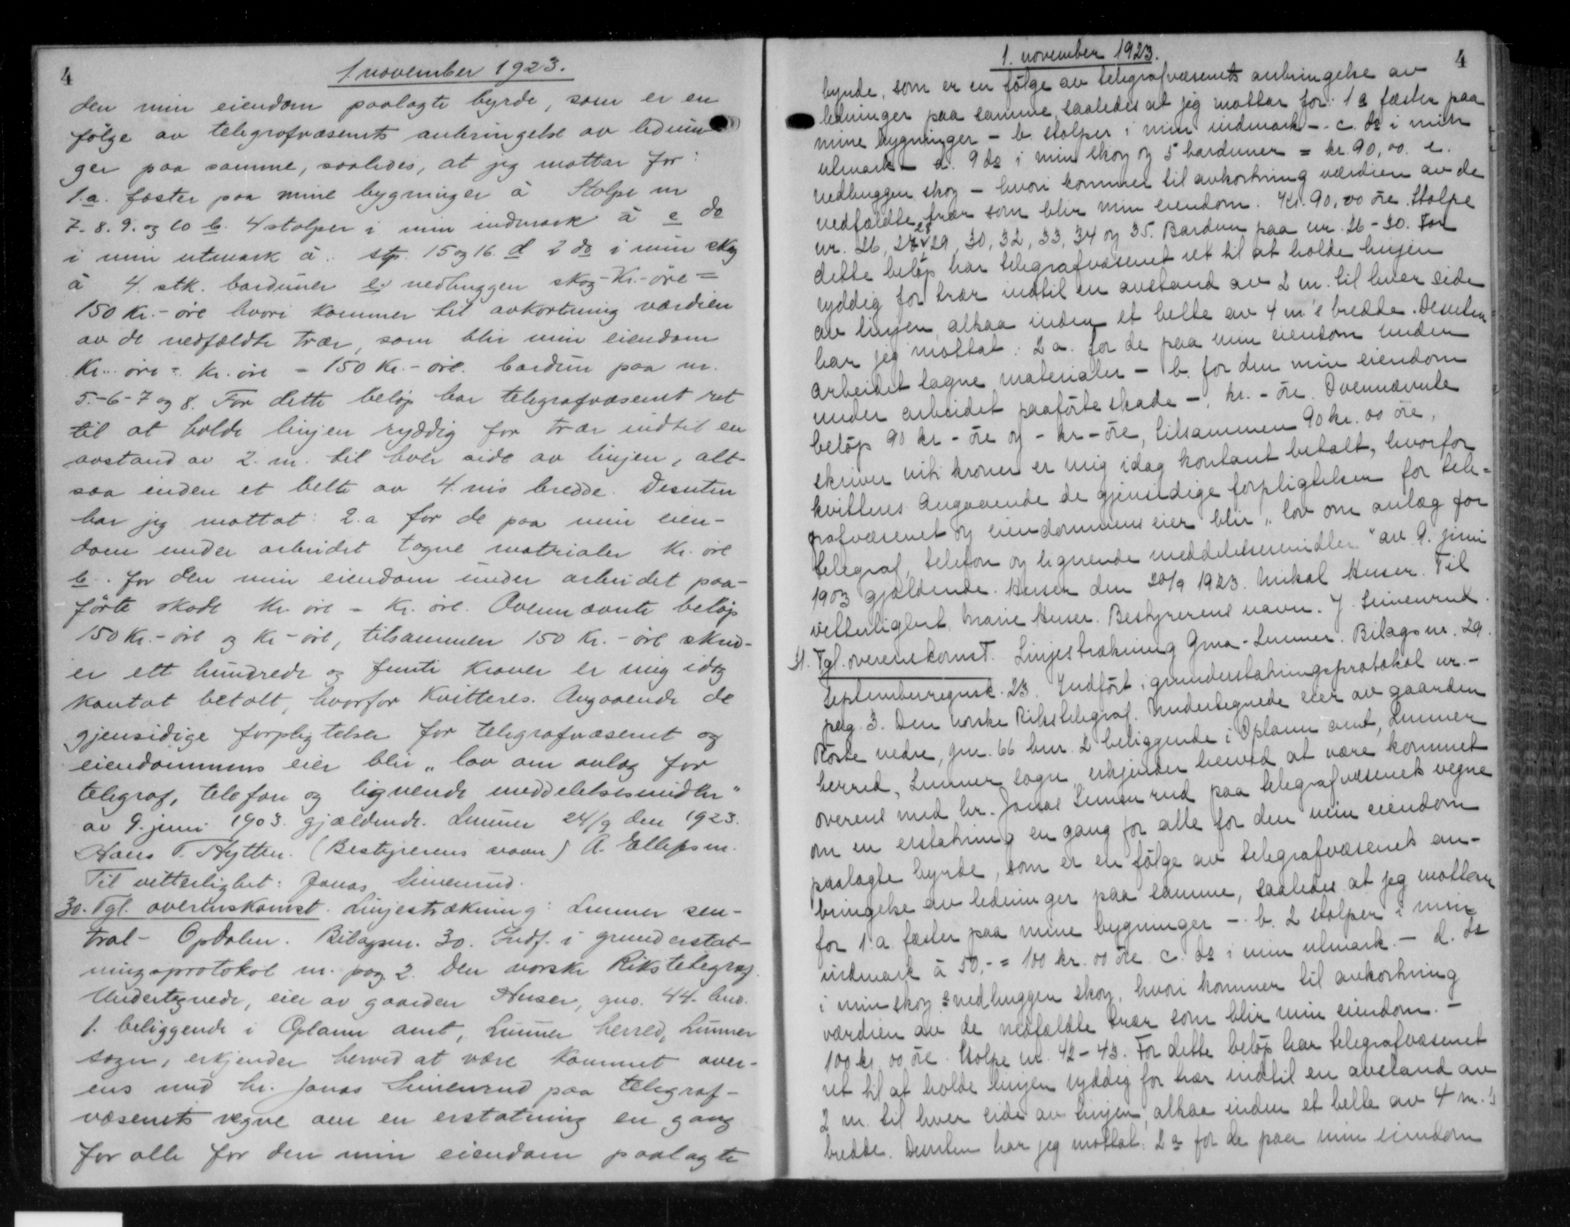 4
1 november 1923.
den min eiendom paalagte byrde, som er en
følge av telegrafvæsenets anbringelse av lednin
ger paa samme, saaledes, at jeg mottar for:
1.a. fæster paa mine bygninger à Stolpe nr
7-8.9. og 10 b. 4 stolper i min indmark à c do
i min utmark à. stp. 15 og 16 d 2 do i min skog
à 4. stk. barduner e. nedhuggen skog-Kr.-øre=
150 Kr.-øre hvori kommer til avkortning værdien
av de nedfældte trær, som blir min eiendom
Kr.. øre = kr. øre = 150 Kr.-øre. bardun paa nr.
5.-6-7 og 8. For dette beløp har telegrafvæsenet ret
til at holde linjen ryddig for trær indtil en
avstand av 2. m. til hver side av linjen, alt-
saa inden et belte av 4. ms bredde. Desuten
har jeg mottat: 2.a for de paa min eien-
dom under arbeidet tagne matrialer Kr. øre
b. for den min eiendom under arbeidet paa-
førte skade Kr. øre = Kr. øre. Ovennævnte beløp
150 Kr.-øre og Kr-øre, tilsammen 150 Kr.-øre skriv-
er ett hundrede og femti Kroner er mig idag
kontat betalt, hvorfor Kvitteres. Angaaende de
gjensidige forpligtelser for telegrafvæsenet og
eiendommens eier blir „lov om anlæg for
telegraf, telefon og lignende meddelelsesmidler"
av 9. juni 1903. gjældende. Lunner 24/9 den 1923.
Hans T. Hytten. (Bestyrerens navn) A. Ellefsen.
Til vitterlighet: Jonas Simenrud.
30. Tgl. overenskomst. Linjestrækning: Lunner sen-
tral- Opdalen. Bilagsnr. 30. Indf. i grunderstat-
ningsprotokol nr. pag 2. Den norske Rikstelegraf.
Undertegnede, eier av gaarden Huser, gno. 44. bno.
1. beliggende i Oplann amt, Lunner herred, Lunner
sogn, erkjender herved at være kommet over-
ens med hr. Jonas Simenrud paa telegraf-
væsenets vegne om en erstatning en gang
for alle for den min eiendom paalagte
4
1. november 1923.
byrde, som er en følge av telegrafvæsenets anbringelse av
ledninger paa samme, saaledes at jeg mottar for: 1 a fæster paa
mine bygninger - b. stolper i min indmark - c. do i min
utmark - d. 9 do i min skog og 5 barduner = kr. 90,00. e.
nedhuggen skog - hvori kommer til avkortning værdien av de
nedfældte trær som blir min eiendom. Kr. 90,00 øre. Stolpe
nr. 26, 27, 28, 29, 30, 32, 33, 34 og 35. Bardun paa nr. 26-30. For
dette beløp har telegrafvæsenet ret til at holde linjen
ryddig for trær indtil en avstand av 2 m. til hver side
av linjen, altsaa inden et belte av 4 m's bredde. Desuten
har jeg mottat: 2 a. for de paa min eiendom under
arbeidet tagne materialer - b. for den min eiendom
under arbeidet paaførte skade -, kr. - øre. Ovennævnte
beløp 90 kr - øre og - kr - øre, tilsammen 90 kr. 00 øre,
skriver nitti kroner er mig idag kontant betalt, hvorfor
kvitteres. Angaaende de gjensidige forpligtelser for tele-
grafvæsenet og eiendommens eier blir „lov om anlæg for
telegraf, telefon og lignende meddelelsesmidler" av 9. juni
1903 gjældende. Huser den 20/9 1923. Mikal Huser. Til
vitterlighet Marie Huser. Bestyrerens navn. J. Simenrud.
31. Tgl. overenskomst. Linjestrækning Grua-Lunner. Bilagsnr. 29.
Septemberregnsk. 23. Indført i grunderstatningsprotokol nr. -
pag. 3. Den norske Rikstelegraf. Undertegnede eier av gaarden
nedre, gnr. 66 bnr. 2 beliggende i Oplann amt, Lunner
herred, Lunner sogn, erkjender herved at være kommet
overens med hr. Jonas Simenrud paa telegrafvæsenets vegne
om en erstatning en gang for alle for den min eiendom
paalagte byrde, som er en følge av telegrafvæsenets an-
bringelse av ledninger paa samme, saaledes at jeg mottar
for 1.a fæster paa mine bygninger - b. 2 stolper i min
indmark à 50,- = 100 kr. 00 øre c. do i min utmark. - d. do
i min skog e nedhuggen skog, hvori kommer til avkortning
værdien av de nedfældte trær som blir min eiendom. -
100 kr. 00 øre. Stolpe nr. 42-43. For dette beløp har telegrafvæsenet
ret til at holde linjen ryddig for trær indtil en avstand av
2 m. til hver side av linjen, altsaa inden et belte av 4 m.'s
bredde. Desuten har jeg mottat: 2 a for de paa min eiendom